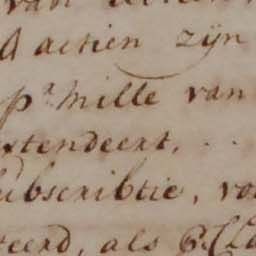 van
actien zijn
p.r mille van
tendeert, . .
ubscribtie, vo
teerd, als